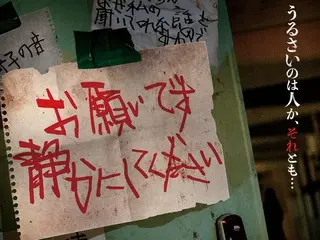 うるさいのは人か、それとも…
お願いです
静かにしてください
子の音